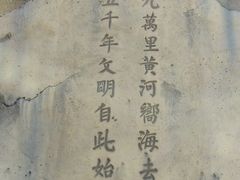 九萬里黄河嚮海去
五千年文明自此始